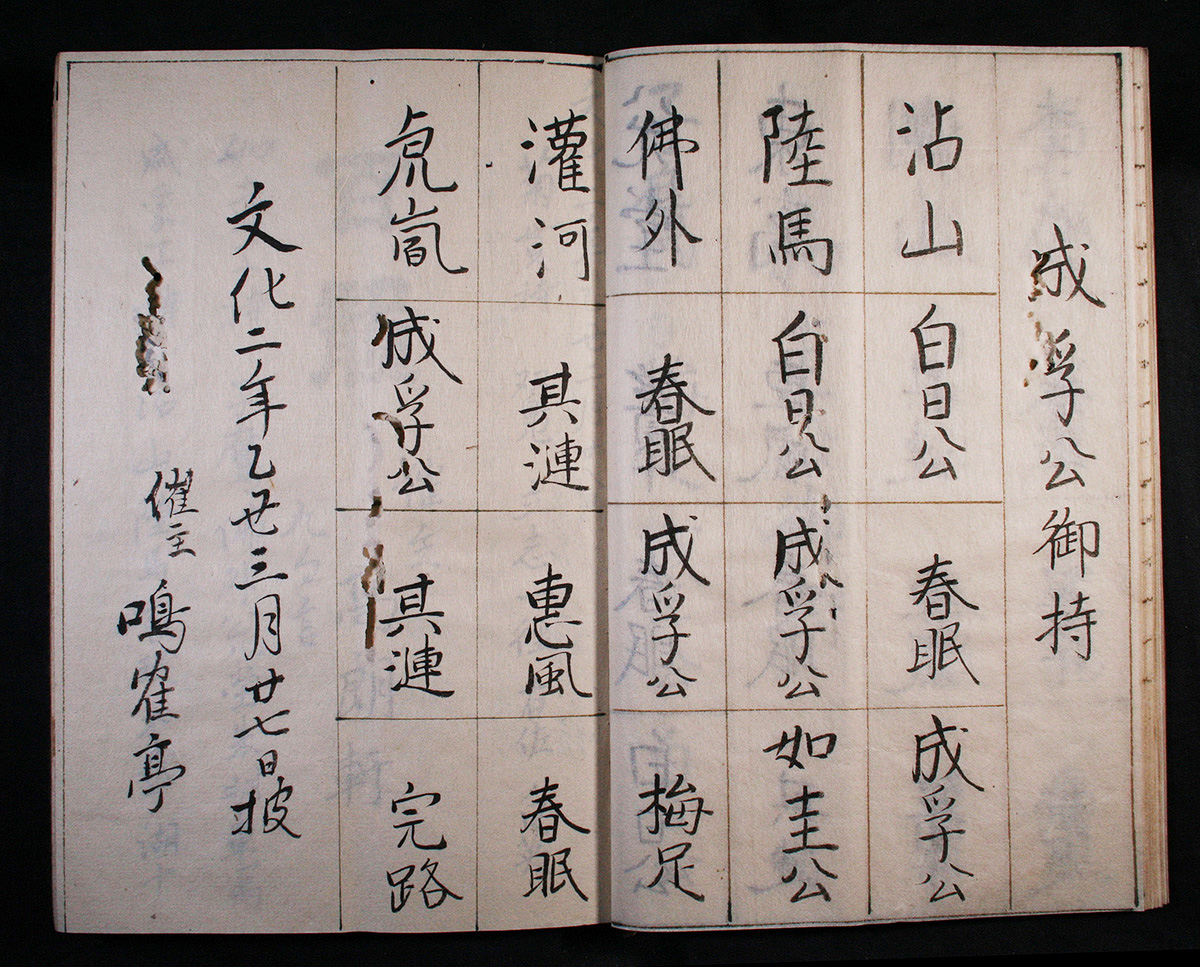 成孚公御持
沾山 白日公 春眠 成孚公
陸馬 白日公 成孚公 如圭公
佛外 春眠 成孚公 梅足
灌河 其漣 惠風 春眠
成孚公 其漣 完路
文化二年乙丑三月廿七日披
催主 鳴隺亭